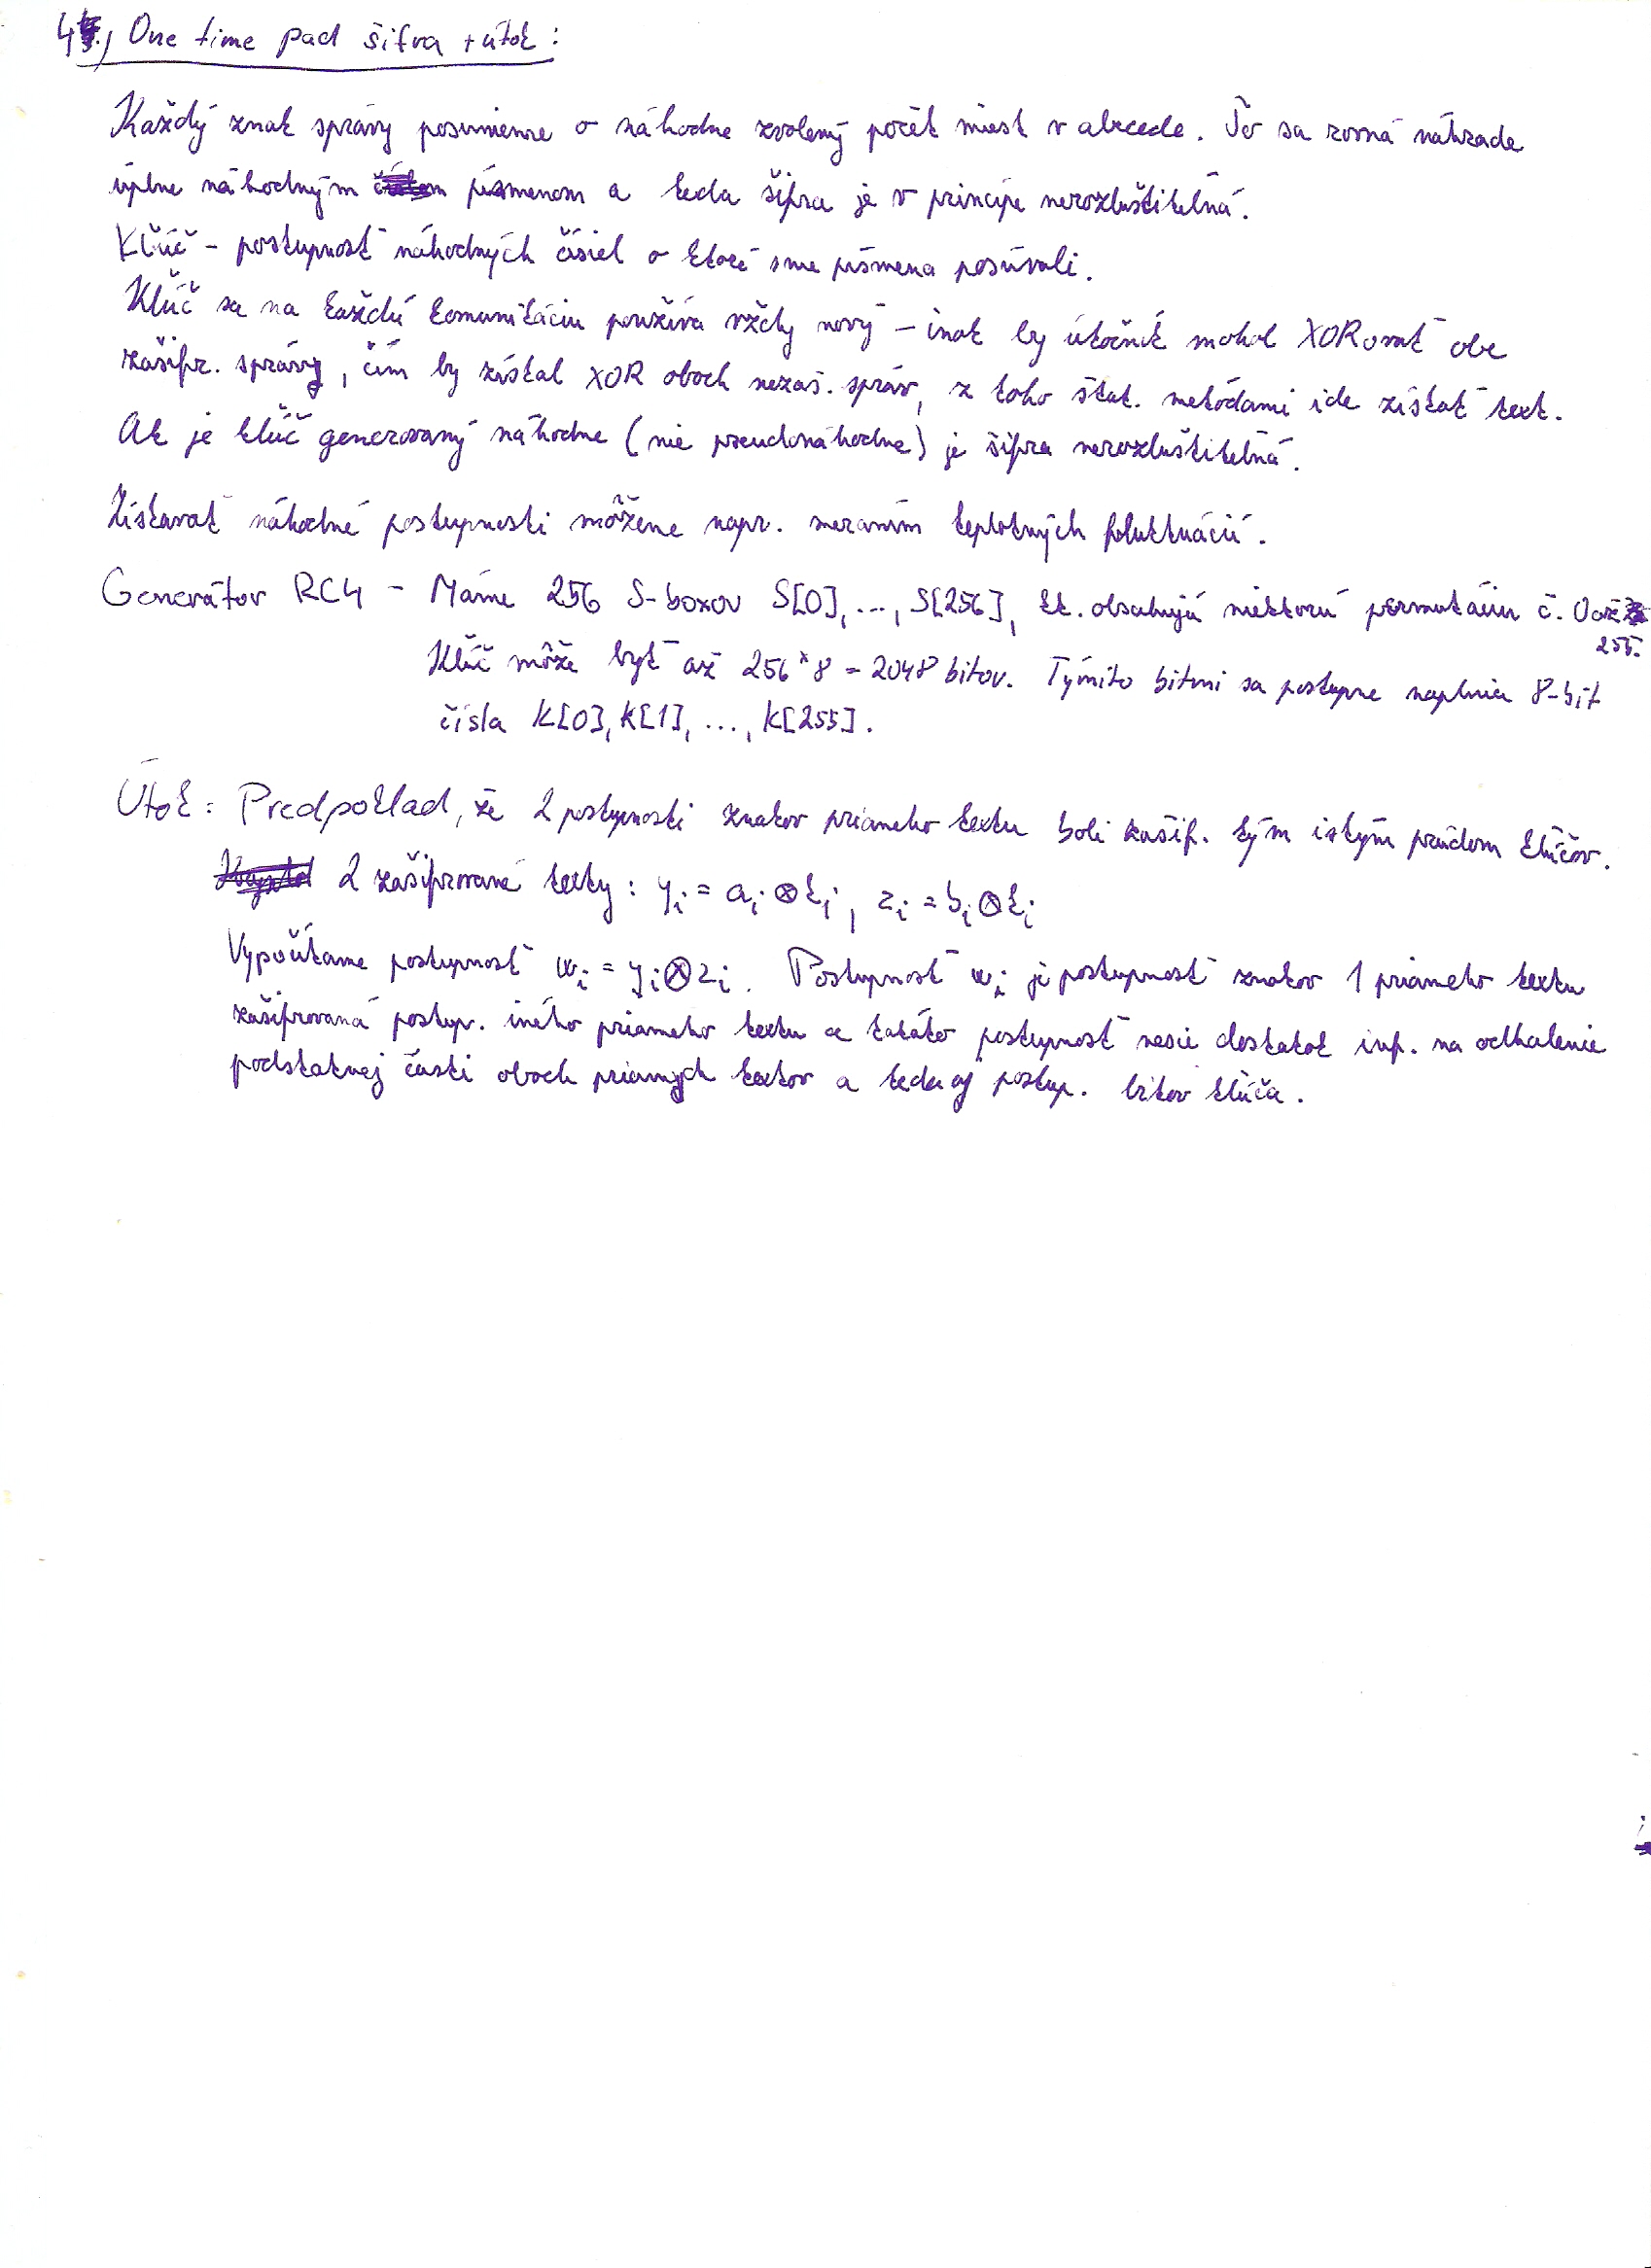 4., One time pad šifra + útok:
Každý znak správy posunieme o náhodne zvolený počet miest v abecede. To sa rovná náhrade
úplne náhodným písmenom a teda šifra je v princípe nerozluštiteľná.
Kľúč - postupnosť náhodných čísiel o ktoré sme písmena posúvali.
Kľúč sa na každú komunikáciu používa vždy nový - inak by útočník mohol XORovať obe
zašifr. správy, čím by získal XOR oboch nezaš. správ, z toho štat. metódami ide získať text.
Ak je kľúč generovaný náhodne (nie pseudonáhodne) je šifra nerozluštiteľná.
Získavať náhodné postupnosti môžeme napr. meraním teplotných fluktuácií.
Generátor RC4 - Máme 256 S-boxov S[0], ..., S[256], kt. obsahujú niektorú permutáciu č. 0 až
255.
Kľúč môže byť až 256*8 = 2048 bitov. Týmito bitmi sa postupne naplnia 8-bit
čísla K[0], K[1], ..., K[255].
Útok: Predpoklad, že 2 postupnosti znakov priameho textu boli zašif. tým istým prúdom kľúčov.
2 zašifrované texty: yᵢ = aᵢ ⊗ kᵢ, zᵢ = bᵢ ⊗ kᵢ
Vypočítame postupnosť wᵢ = yᵢ ⊗ zᵢ. Postupnosť wᵢ je postupnosť znakov 1 priameho textu
zašifrovaná postup. iného priameho textu a takáto postupnosť nesie dostatok inf. na odhalenie
podstatnej časti oboch priamych textov a teda aj postup. bitov kľúča.